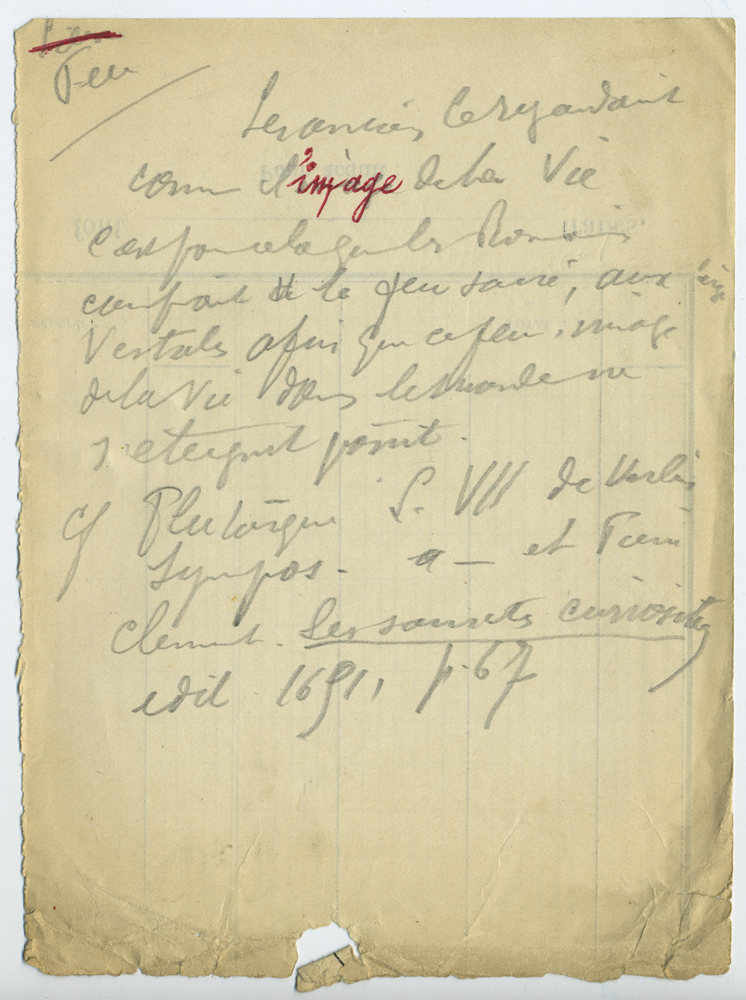 Feu
Les anciens le regardaient
comme l'image de la Vie
C'est pour cela que les Romains
confiait le feu sacré, aux
Vestales afin que ce feu, image
de la Vie dans le monde ne
s'eteignit point.
cf Plutarque S. VII de
Sympos. - et
Clement. Les sonnets curiosités
edit 1691, p. 67